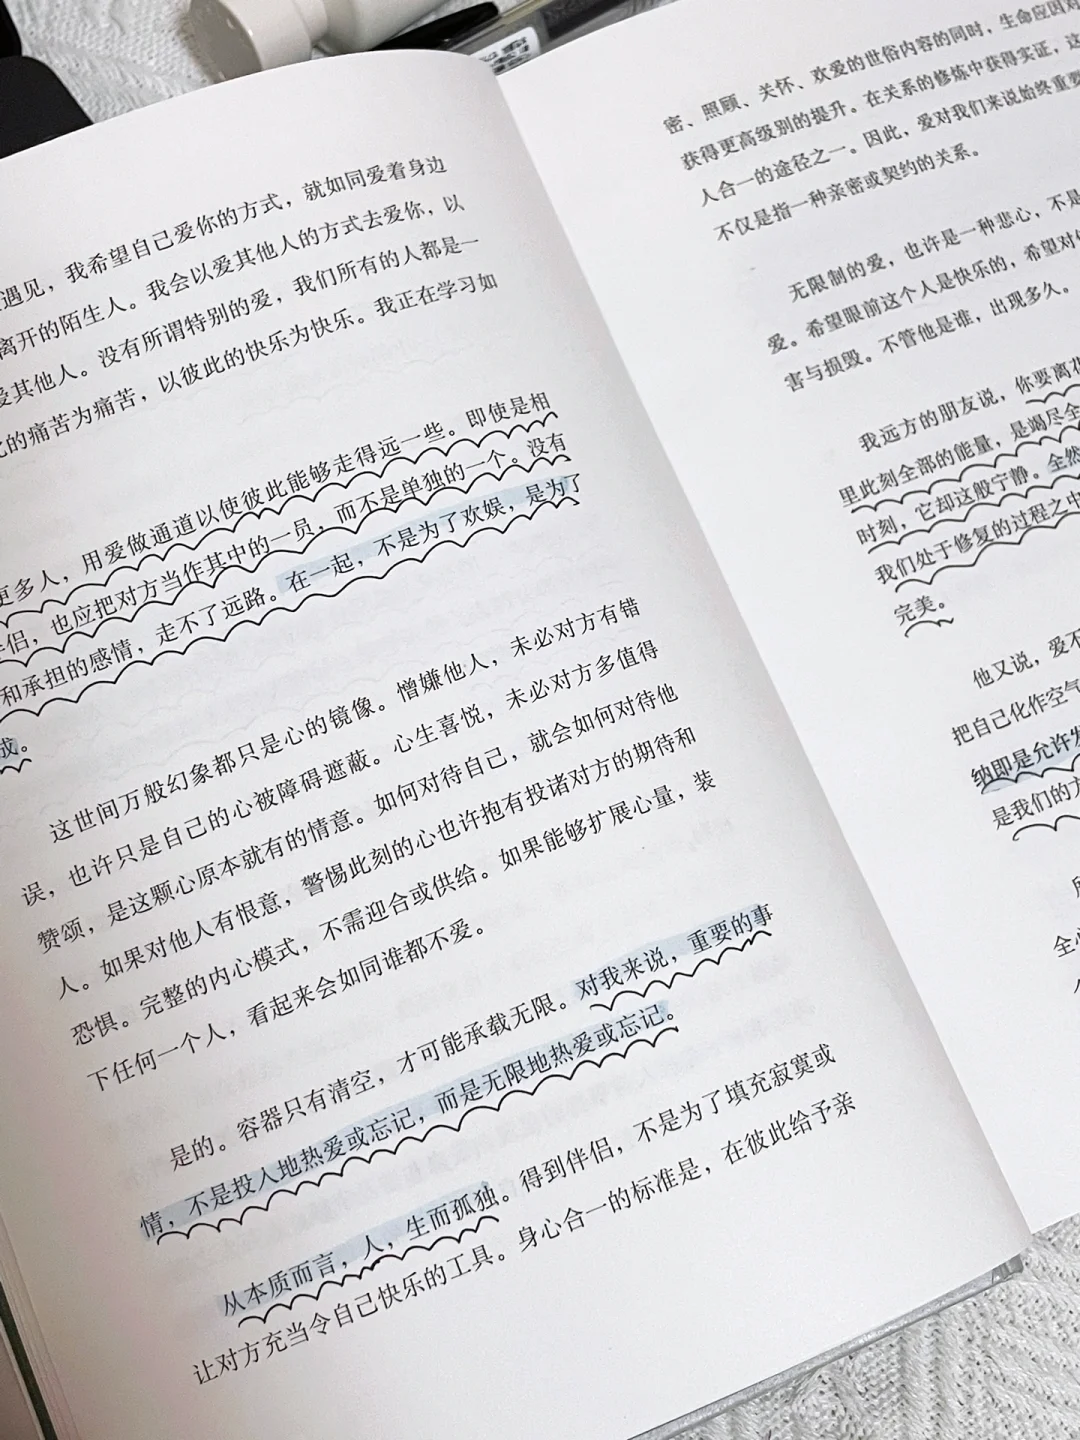 遇见，我希望自己爱你的方式，就如同爱着身边
离开的陌生人。我会以爱其他人的方式去爱你，以
爱其他人。没有所谓特别的爱，我们所有的人都是一
的痛苦为痛苦，以彼此的快乐为快乐。我正在学习如
更多人，用爱做通道以使彼此能够走得远一些。即使是相
侣，也应把对方当作其中的一员，而不是单独的一个。没有
和承担的感情，走不了远路。在一起，不是为了欢娱，是为了
成。
这世间万般幻象都只是心的镜像。憎嫌他人，未必对方有错
误，也许只是自己的心被障碍遮蔽。心生喜悦，未必对方多值得
赞颂，是这颗心原本就有的情意。如何对待自己，就会如何对待他
人。如果对他人有恨意，警惕此刻的心也许抱有投诸对方的期待和
恐惧。完整的内心模式，不需迎合或供给。如果能够扩展心量，装
下任何一个人，看起来会如同谁都不爱。
是的。容器只有清空，才可能承载无限。对我来说，重要的事
情，不是投入地热爱或忘记，而是无限地热爱或忘记。
从本质而言，人，生而孤独。得到伴侣，不是为了填充寂寞或
让对方充当令自己快乐的工具。身心合一的标准是，在彼此给予亲
密、照顾、关怀、欢爱的世俗内容的同时，生命应因对
获得更高级别的提升。在关系的修炼中获得实证，这
人合一的途径之一。因此，爱对我们来说始终重要
不仅是指一种亲密或契约的关系。
无限制的爱，也许是一种悲心，不是
爱。希望眼前这个人是快乐的，希望对
害与损毁。不管他是谁，出现多久。
我远方的朋友说，你要离花
里此刻全部的能量，是竭尽全
时刻，它却这般宁静。全然
我们处于修复的过程之中
完美。
他又说，爱不
把自己化作空气
纳即是允许发
是我们的方
全心